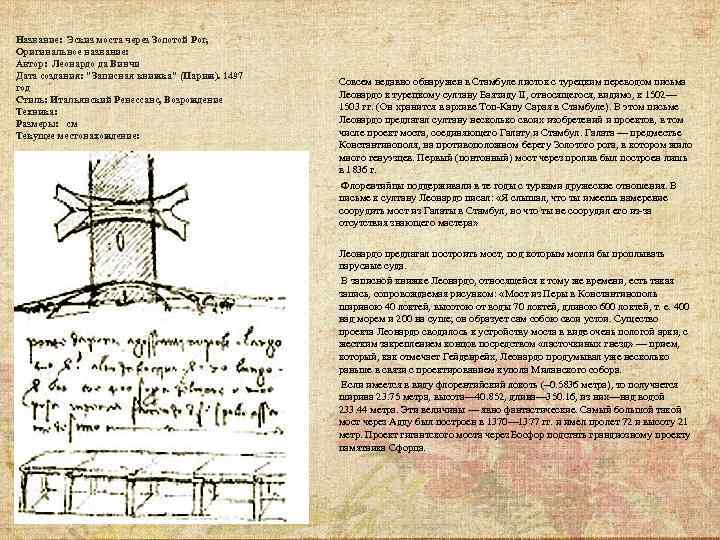 Название: Эскиз моста через Золотой Рог,
Оригинальное название:
Автор: Леонардо да Винчи
Дата создания: "Записная книжка" (Париж). 1497
год
Стиль: Итальянский Ренессанс, Возрождение
Техника:
Размеры: см
Текущее местонахождение:
Совсем недавно обнаружен в Стамбуле листок с турецким переводом письма
Леонардо к турецкому султану Баязиду II, относящегося, видимо, к 1502—
1503 гг. (Он хранится в архиве Топ-Капу Сарая в Стамбуле). В этом письме
Леонардо предлагал султану несколько своих изобретений и проектов, в том
числе проект моста, соединяющего Галату и Стамбул. Галата — предместье
Константинополя, на противоположном берегу Золотого рога, в котором жило
много генуэзцев. Первый (понтонный) мост через пролив был построен лишь
в 1836 г.
Флорентийцы поддерживали в те годы с турками дружеские отношения. В
письме к султану Леонардо писал: «Я слышал, что ты имеешь намерение
соорудить мост из Галаты в Стамбул, но что ты не соорудил его из-за
отсутствия знающего мастера»
Леонардо предлагал построить мост, под которым могли бы проплывать
парусные суда.
В записной книжке Леонардо, относящейся к тому же времени, есть такая
запись, сопровождаемая рисунком: «Мост из Перы в Константинополь
шириною 40 локтей, высотою от воды 70 локтей, длиною 600 локтей, т. е. 400
над морем и 200 на суше; он образует сам собою свои устои. Существо
проекта Леонардо сводилось к устройству моста в виде очень пологой арки, с
жестким закреплением концов посредством «ласточкиных гнезд» — прием,
который, как отмечает Гейденрейх, Леонардо продумывал уже несколько
раньше в связи с проектированием купола Миланского собора.
Если имеется в виду флорентийский локоть (--0.5836 метра), то получается
ширина 23.75 метра, высота—40.852, длина—350.16, из них—над водой
233.44 метра. Эти величины — явно фантастические. Самый большой такой
мост через Адду был построен в 1370—1377 гг. и имел пролет 72 и высоту 21
метр. Проект гигантского моста через Босфор подстать грандиозному проекту
памятника Сфорца.